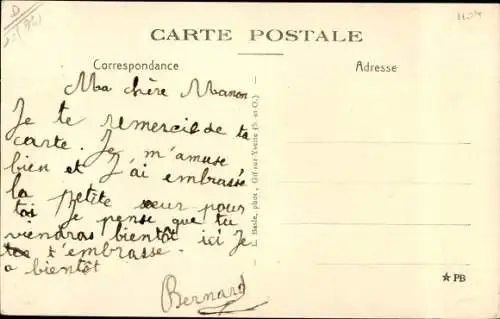 1104
CARTE POSTALE
Correspondance
Adresse
Ma chère Manon
Je te remercie de ta
carte. Je m'amuse
bien et J'ai embrassé
la petite sœur pour
toi Je pense que tu
viendras bientôt ici Je
t'embrasse
a bientôt
Bernard
L. Hasle, phot., Gif-sur-Yvette (S.-et-O.)
★ PB